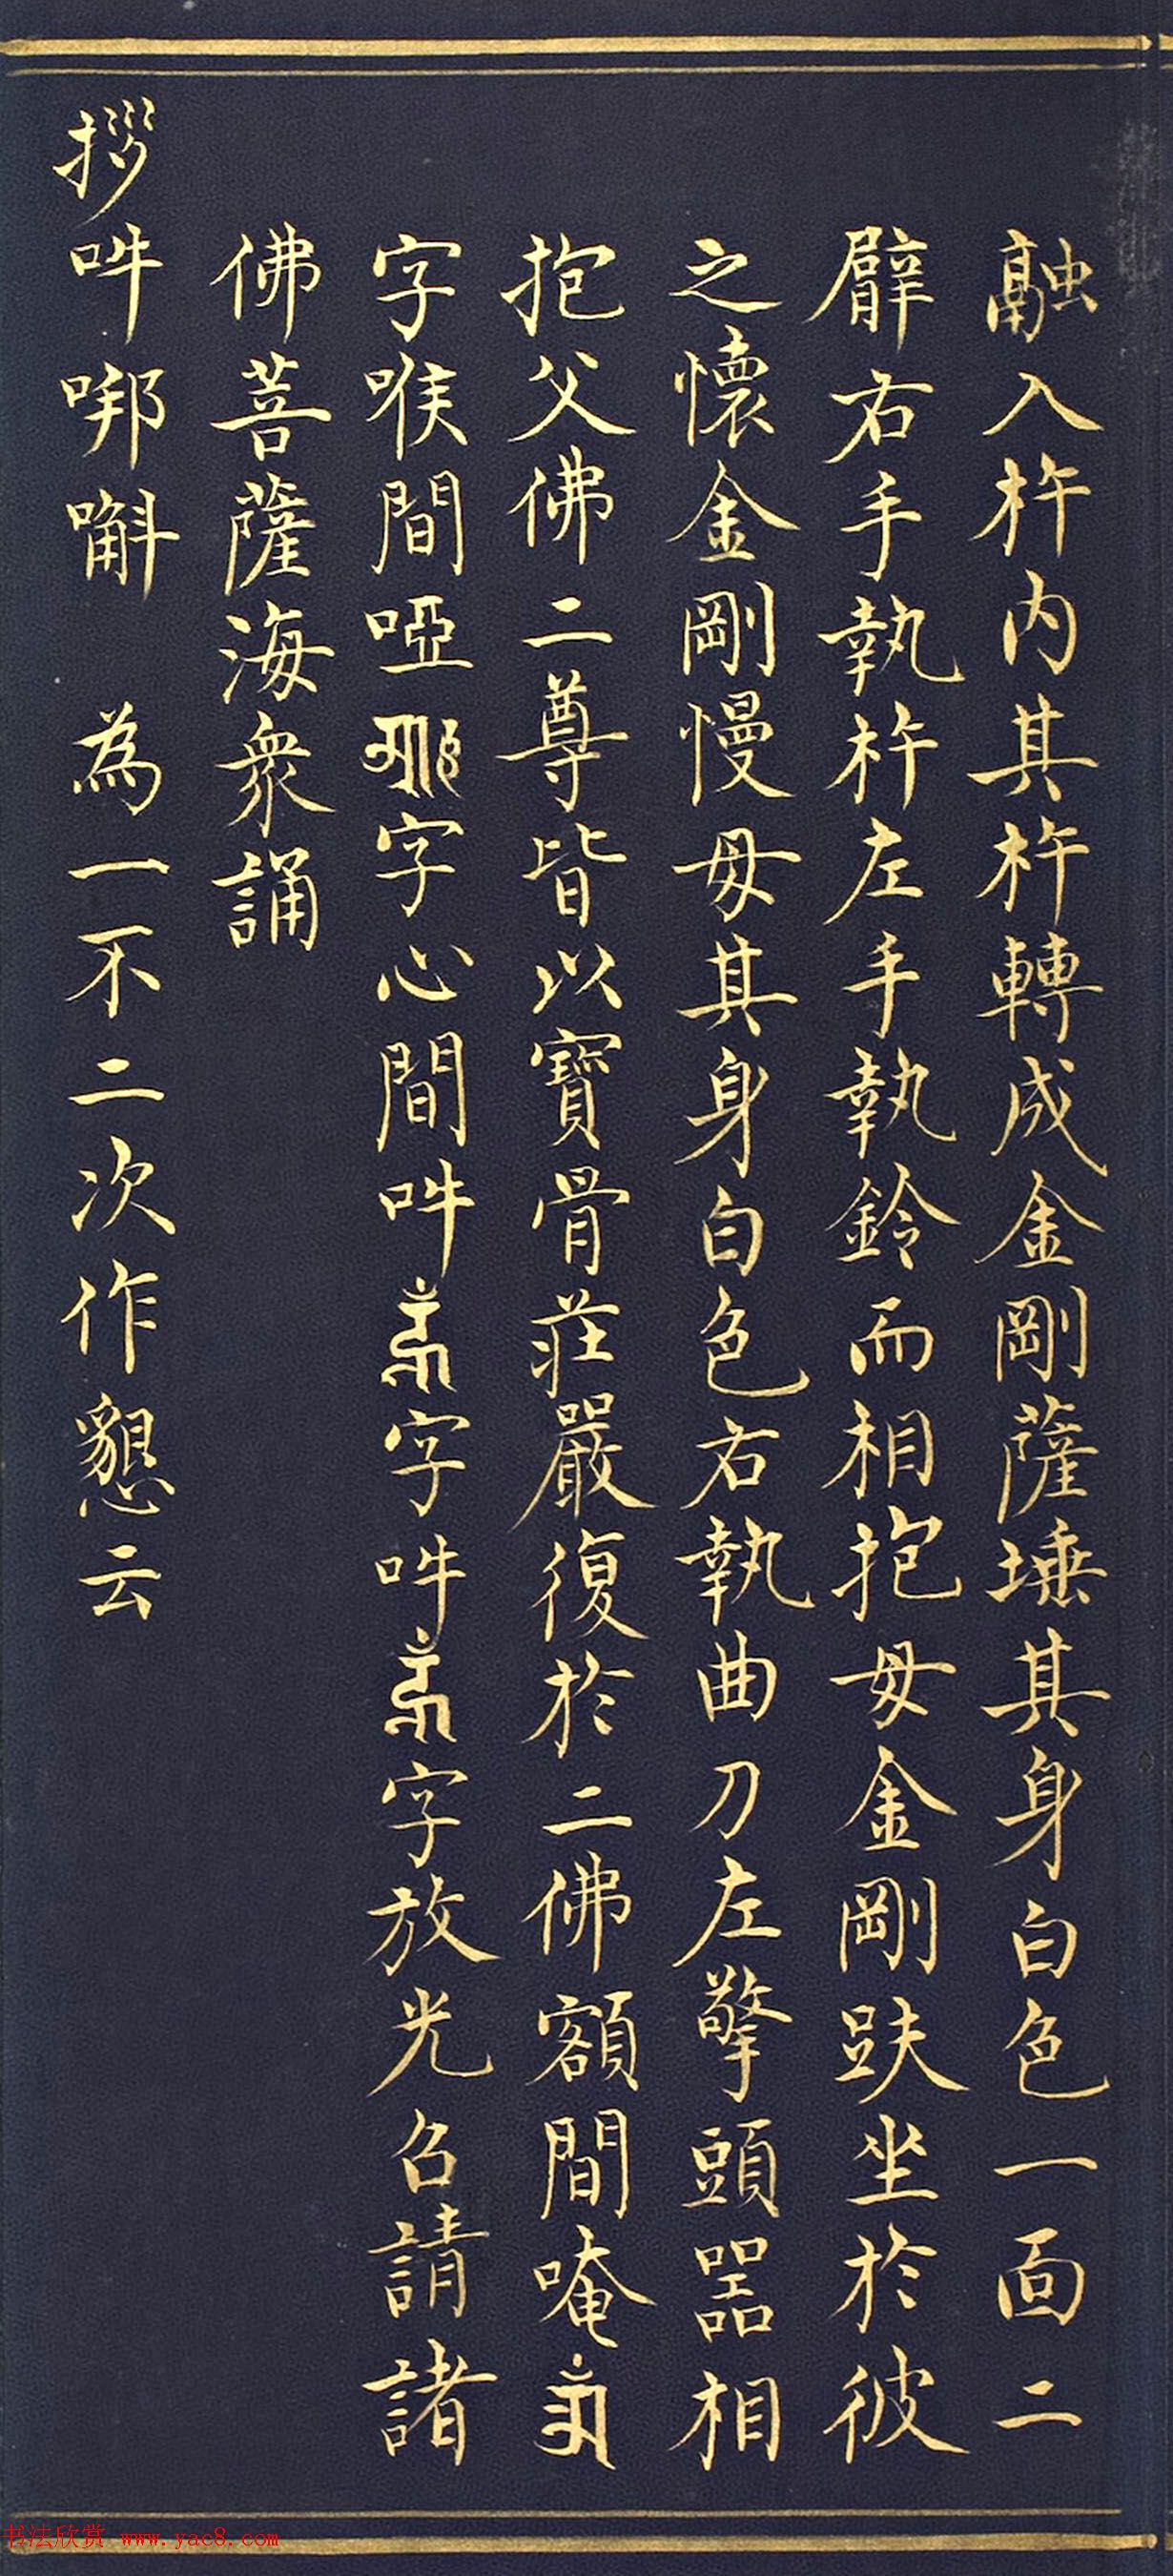 融入杵内其杵轉成金剛薩埵其身白色一面二
臂右手執杵左手執鈴而相抱母金剛趺坐於彼
之懷金剛慢母其身白色右執曲刀左擎頭器相
抱父佛二尊皆以寶骨莊嚴復於二佛額間唵ཨོཾ
字喉間啞ཨཱཿ字心間吽ཧཱུྃ字吽ཧཱུྃ字放光召請諸
佛菩薩海衆誦
拶吽𠺁嘝 為一不二次作懇云
书法欣赏 www.yac8.com